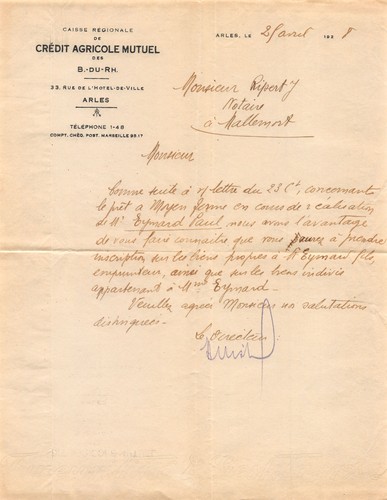 CAISSE RÉGIONALE
DE
CRÉDIT AGRICOLE MUTUEL
DES
B.-DU-RH.
33, RUE DE L'HOTEL-DE-VILLE
ARLES
TÉLÉPHONE 1-48
COMPT. CHÈQ. POST. MARSEILLE 95.17
ARLES, LE 25 avril 192 8
Monsieur Ripert J
Notaire
à Mallemort
Monsieur
Comme suite à v/ lettre du 23 Ct, concernant
le prêt à Moyen terme en cours de réalisation
de Mr Eymard Paul, nous avons l'avantage
de vous faire connaitre que vous à prendre
inscription sur les biens propres à Mr Eymard fils,
emprunteur, ainsi que sur les biens indivis
appartenant à Mme Eymard.
Veuillez agréer Monsieur nos salutations
distinguées.
Le Directeur